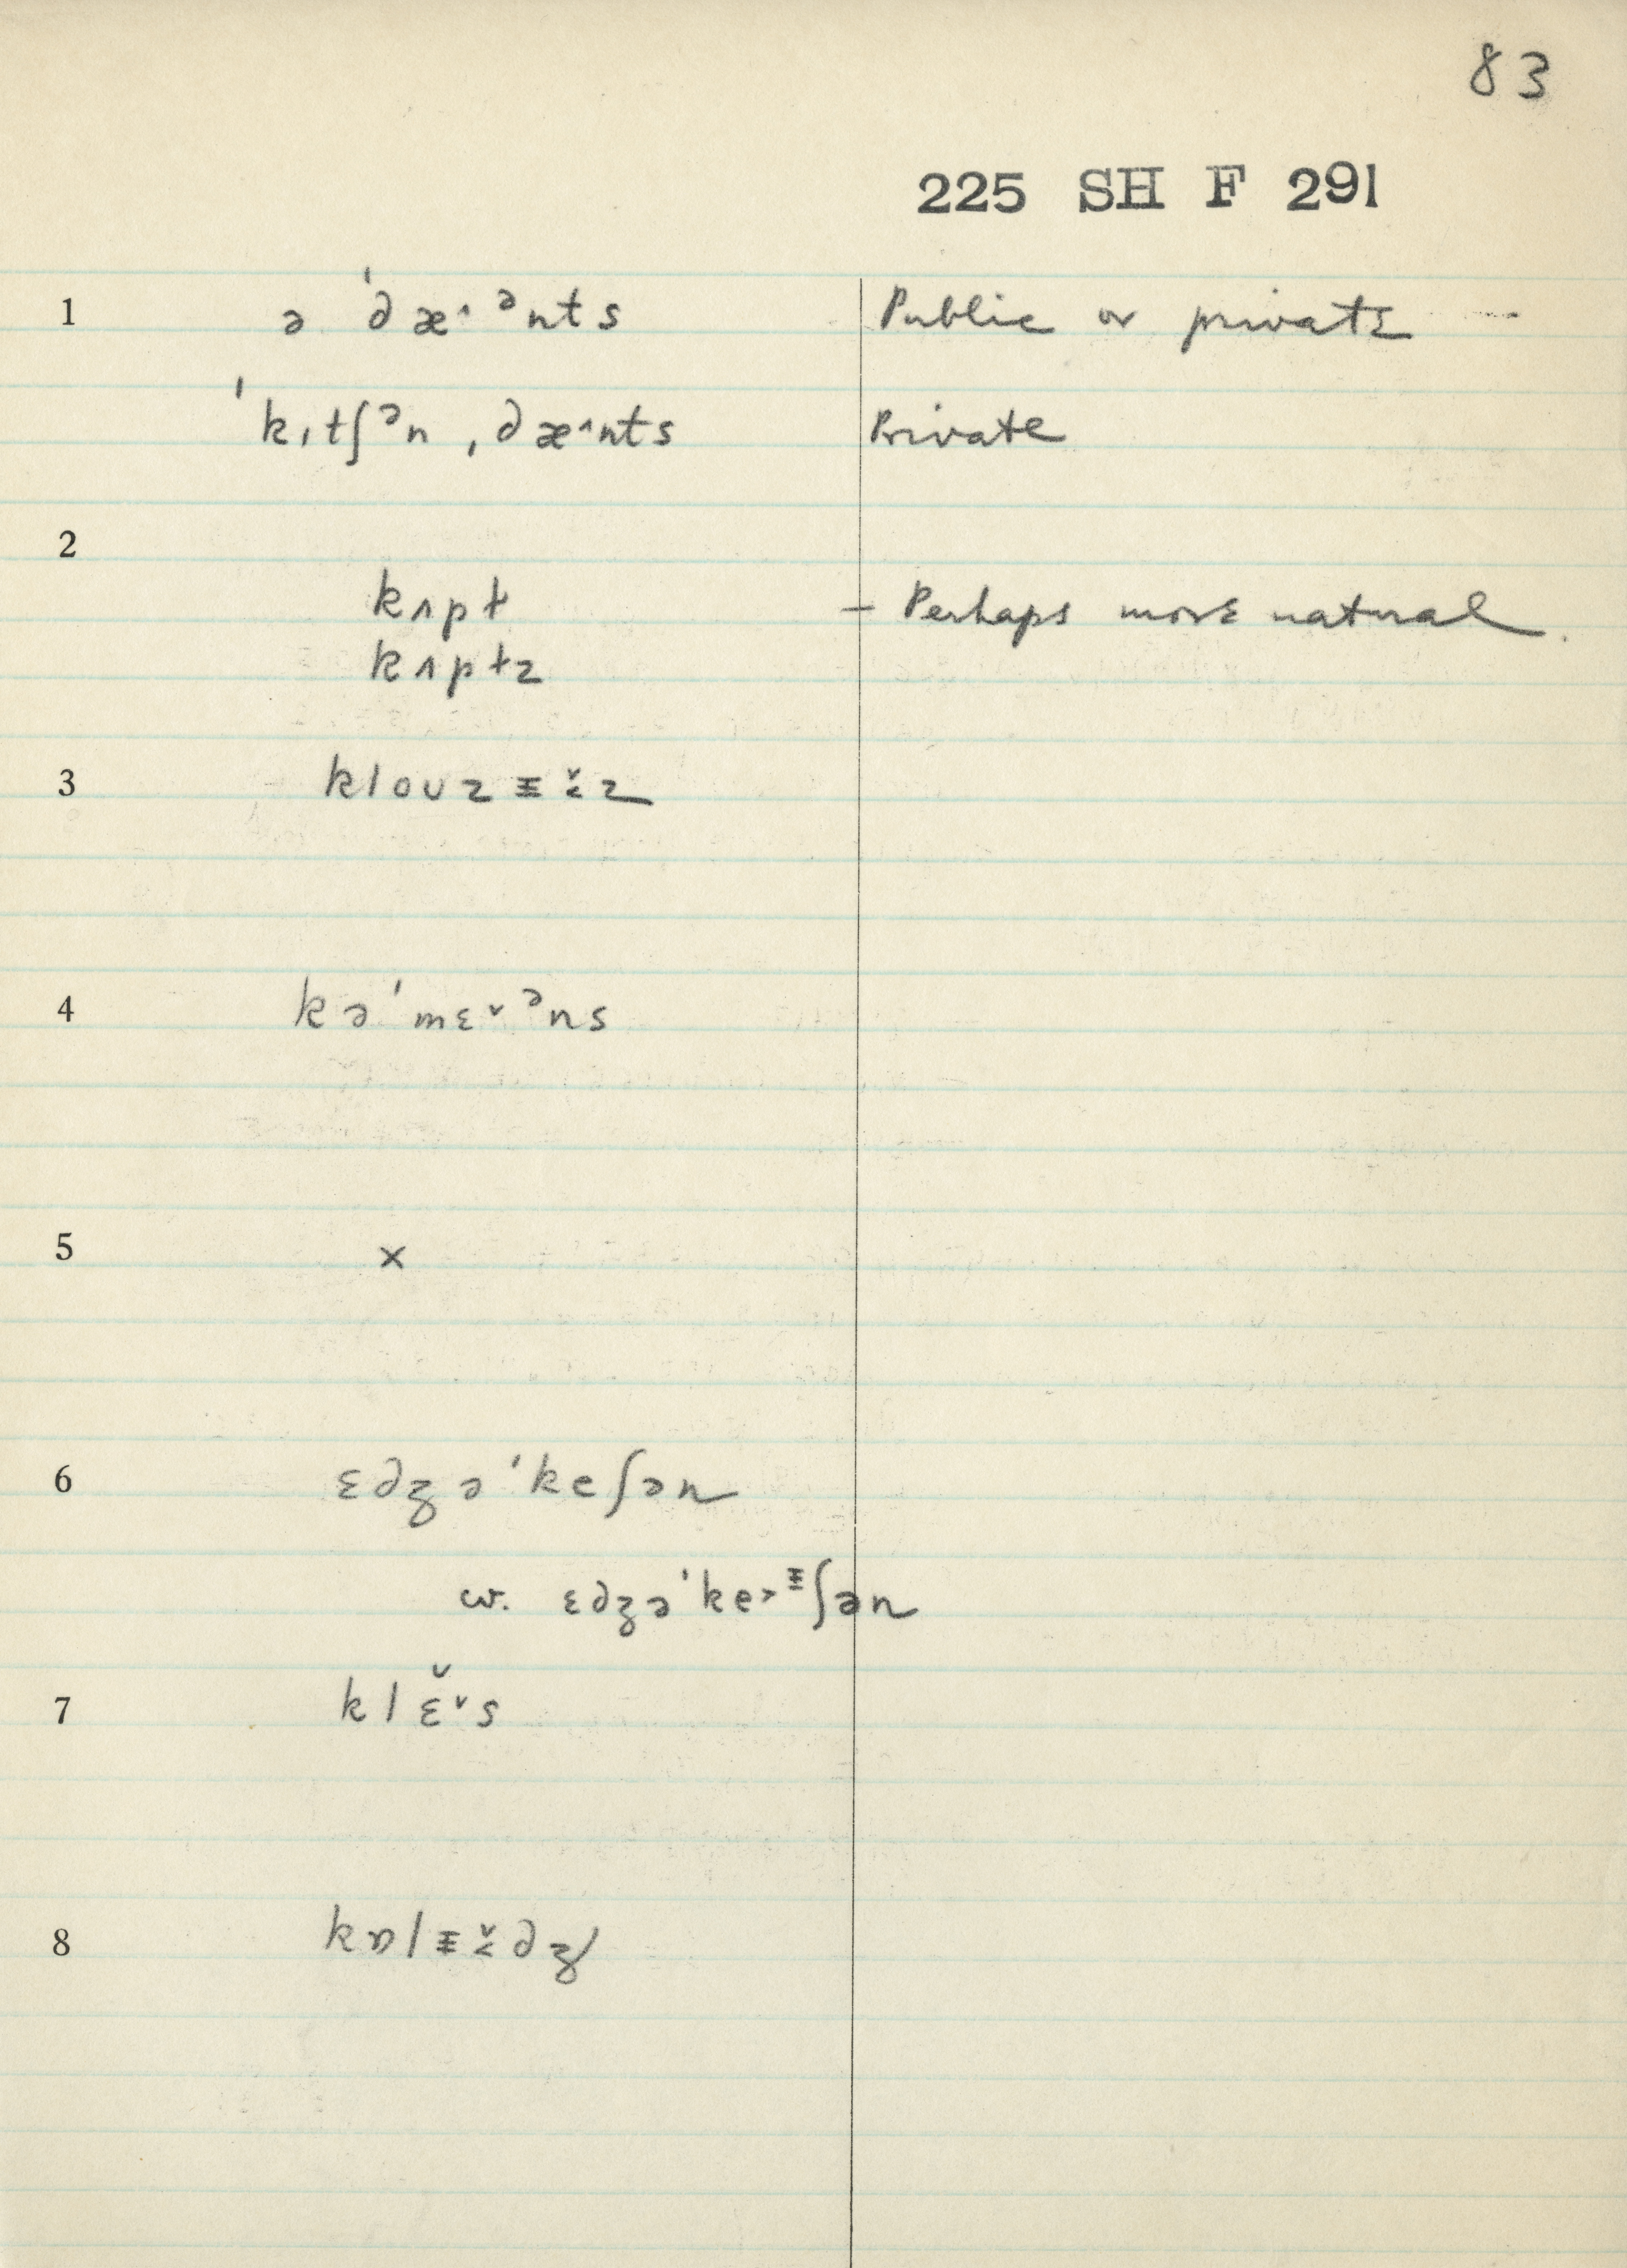 83
225 SH F 291
1 ə ˈdæ˄ᵊnts Public or private
ˈkɪtʃᵊn ˌdæ˄nts Private
2
kʌpɫ – Perhaps more natural.
kʌpɫz
3 klouzɪ̵z
4 kəˈmɛ˅ᵊns
5 x
6 ɛdʒəˈkeʃən
cv. ɛdʒəˈke˃ᶤʃən
7 klɛ̆˅s
8 kɒlɪ̵dʒ